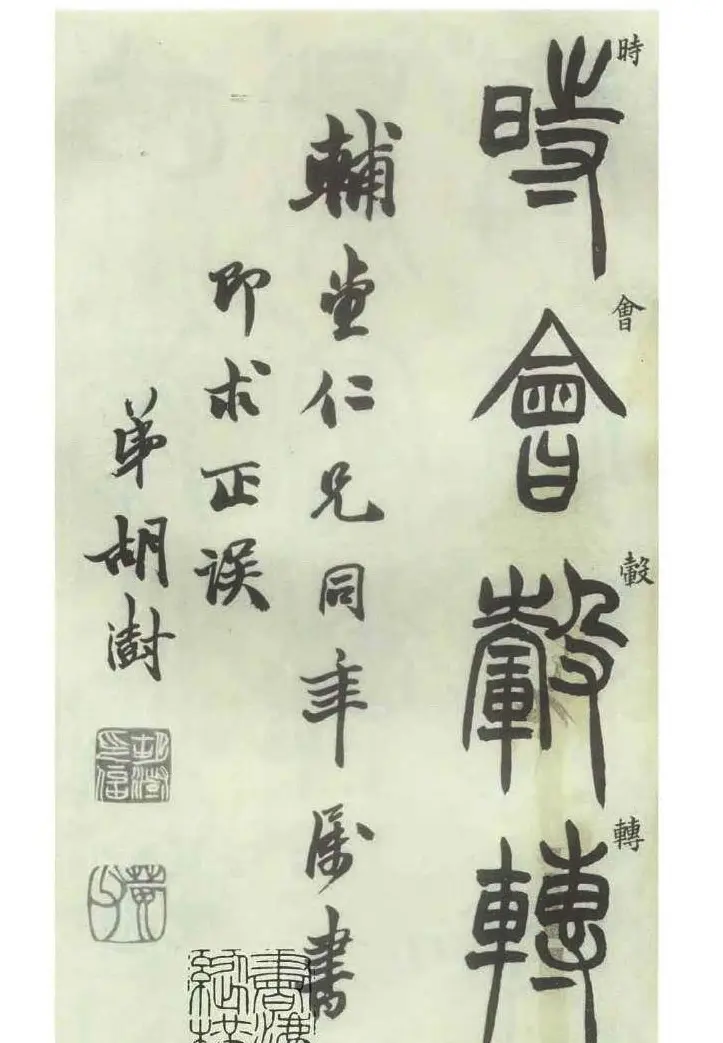 時會轂轉
時會轂轉
輔堂仁兄同年属書
即求正誤
弟胡澍
胡澍印信